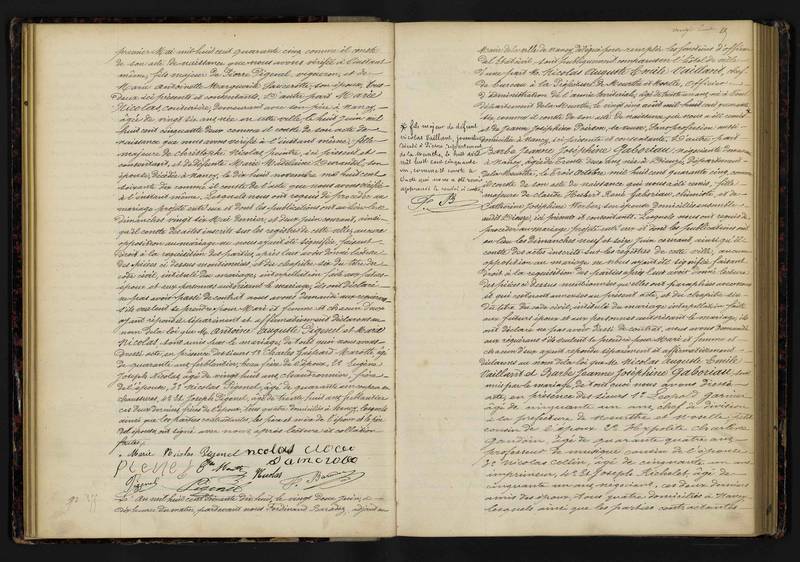 premier Mai mil huit cent quarante cinq comme il conste
de son acte de naissance que nous avons vérifié à l'instant
même, fils majeur de Pierre Pigenel, vigneron, et de
Marie Antoinette Marguerite son épouse,
ici présents et consentants, D'autre part Marie
Nicolas, couturière, demeurant avec son père à Nancy,
âgée de vingt six ans, née en cette ville, le huit juin mil
huit cent cinquante deux comme il conste de son acte de
naissance que nous avons vérifié à l'instant même, fille
majeure de Nicolas, peintre, ici présent et
consentant, et de défunte Marie Madeleine son
épouse, décédée à Nancy, le dix huit novembre mil huit cent
soixante dix comme il conste de l'acte que nous avons vérifié
à l'instant même. Lesquels nous ont requis de procéder au
mariage projeté entre eux et dont les publications ont eu lieu les
dimanches vingt six Mai dernier, et deux juin courant, ainsi
qu'il conste des actes inscrits sur les registres de cette ville, aucune
opposition au mariage ne nous ayant été signifiée, faisant
droit à la réquisition des parties, après leur avoir donné lecture
des pièces ci dessus mentionnées, et du chapitre six du titre du
code civil, intitulé du mariage, interpellation faite aux futurs
époux et aux personnes autorisant le mariage, ils ont déclaré
ne pas avoir passé de contrat, nous avons demandé aux requérans
s'ils veulent se prendre pour Mari et femme et chacun d'eux
ayant répondu séparément et affirmativement déclarons au
nom de la loi que M. Antoine Auguste Pigenel et Marie
Nicolas sont unis par le mariage, de tout quoi nous avons
dressé acte, en présence des sieurs 1° Charles Gaspard Marotte, âgé
de quarante ans, ferblantier, beau frère de l'épouse, 2° Eugène
Joseph Nicolas, âgé de vingt huit ans, chaudronnier, frère
de l'épouse, 3° Nicolas Pigenel, âgé de quarante
chaussures, 4° Joseph Pigenel, âgé de trente huit ans, ferblantier
ces deux derniers frères de l'époux, tous quatre domiciliés à Nancy, lesquels
ainsi que les parties contractantes, les père et mère de l'époux et le père
de l'épouse, ont signé avec nous après lecture et collation
faites.
Marie Nicolas Pigenel nicolas
Pierre
Pigenel Nicolas
Pigenel
L'an mil huit cent soixante dix huit, le vingt deux juin, à
dix heures du matin, pardevant nous Ferdinand adjoint au
fils majeur de défunt
Nicolas Vaillant,
décédé à Dieuze, département
de la Meurthe, le huit août
mil huit cent cinquante
comme il conste de
l'acte
approuvé le renvoi ci contre
F. B
Maire de la ville de Nancy, délégué pour remplir les fonctions d'officier
de l'Etat civil, sont publiquement comparus en l'hôtel de ville
d'une part M. Nicolas Auguste Emile Vaillant, chef
de bureau à la Préfecture de Meurthe et Moselle, officier
d'administration de l'armée territoriale, âgé de trente ans, né à
département de la Meurthe, le vingt cinq août mil huit cent quarante
comme il conste de son acte de naissance que nous avons vérifié
et de Jeanne Joséphine sa veuve, sans profession,
domiciliée à Nancy, ici présente et consentante. D'autre part
Barbe Jeanne Joséphine Gaboriau, négociante, demeurant
à Nancy, âgée de trente deux ans, née à Dieuze, département
de la Meurthe, le trois octobre mil huit cent quarante cinq comme
il conste de son acte de naissance que nous avons vérifié, fille
majeure de Claude Michel Paul Gaboriau, chimiste, et de
Catherine Joséphine son épouse, domiciliés ensemble
audit Dieuze, ici présents et consentants. Lesquels nous ont requis de
procéder au mariage projeté entre eux et dont les publications ont
eu lieu les dimanches neuf et seize juin courant, ainsi qu'il
conste des actes inscrits sur les registres de cette ville, aucune
opposition au mariage ne nous ayant été signifiée, faisant
droit à la réquisition des parties, après leur avoir donné lecture
des pièces ci dessus mentionnées qu'elles ont paraphées avec nous
et qui resteront annexées au présent acte, et du chapitre six
du titre du code civil, intitulé du mariage, interpellation faite
aux futurs époux et aux personnes autorisant le mariage, ils
ont déclaré ne pas avoir passé de contrat, nous avons demandé
aux requérans s'ils veulent se prendre pour Mari et femme et
chacun d'eux ayant répondu séparément et affirmativement
déclarons au nom de la loi que M. Nicolas Auguste Emile
Vaillant et Barbe Jeanne Joséphine Gaboriau sont
unis par le mariage, de tout quoi nous avons dressé
acte, en présence des sieurs 1° Léopold Garnier
âgé de cinquante un ans, chef de division
à la préfecture de Meurthe et Moselle,
cousin de l'époux, 2° Hippolyte Charles
Gaudoin, âgé de quarante quatre ans,
professeur de musique, cousin de l'époux,
3° Nicolas Collin, âgé de cinquante un ans
imprimeur, 4° Joseph Michelet, âgé de
cinquante un ans, négociant, ces deux derniers
amis des époux, tous quatre domiciliés à Nancy
lesquels ainsi que les parties contractantes